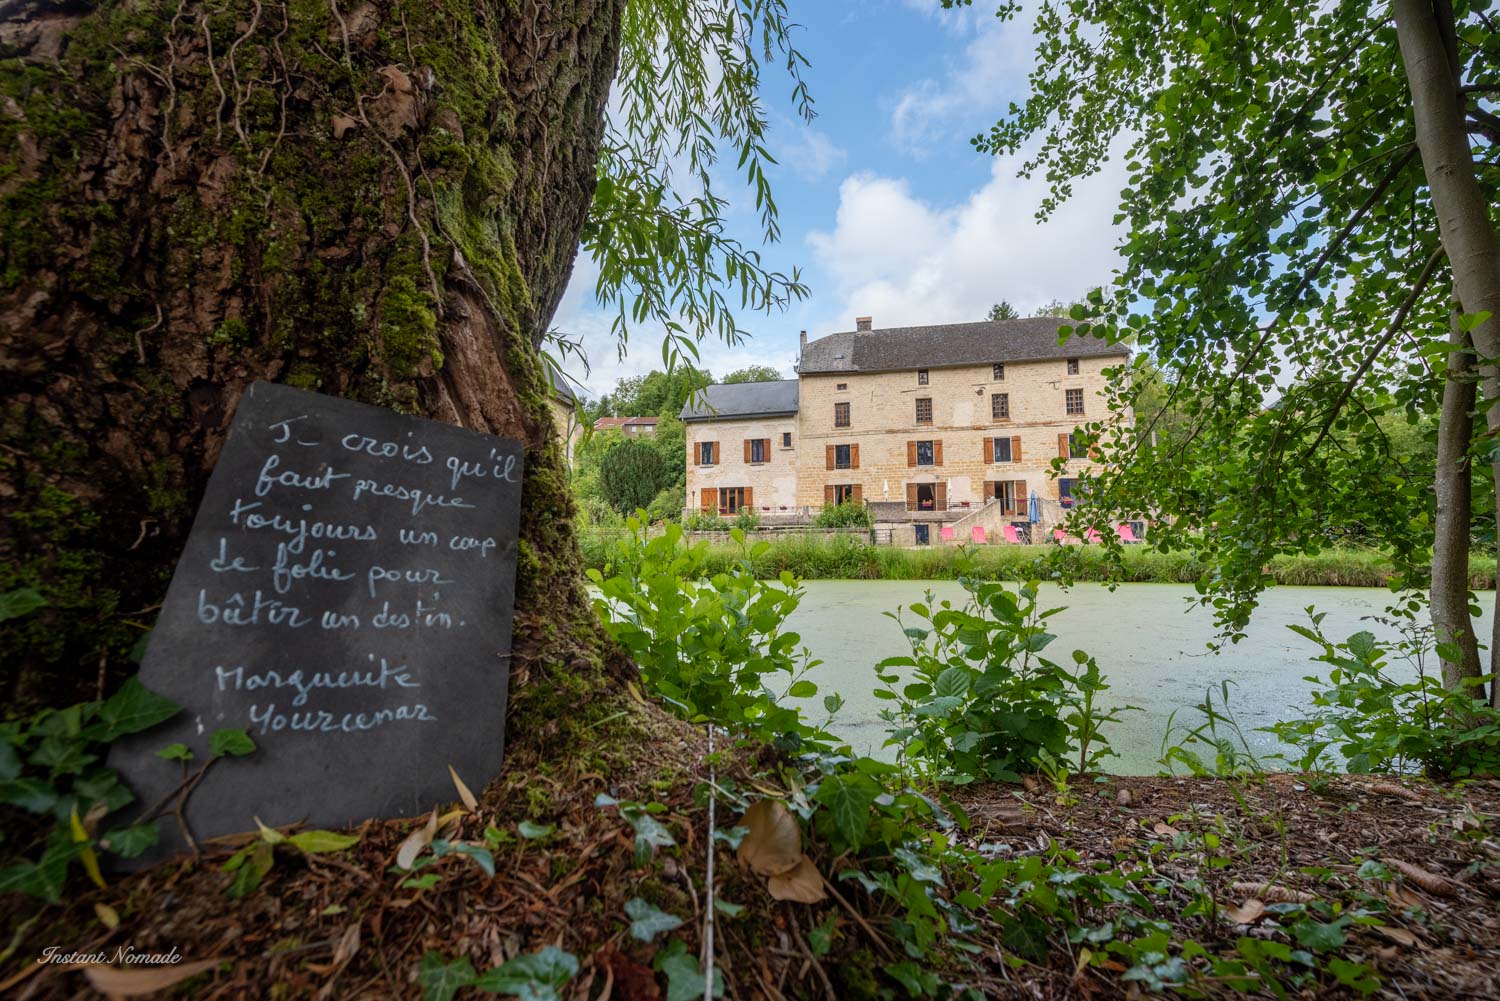 Je crois qu'il
faut presque
toujours un coup
de folie pour
bâtir un destin.
Marguerite
Yourcenar
Instant Nomade